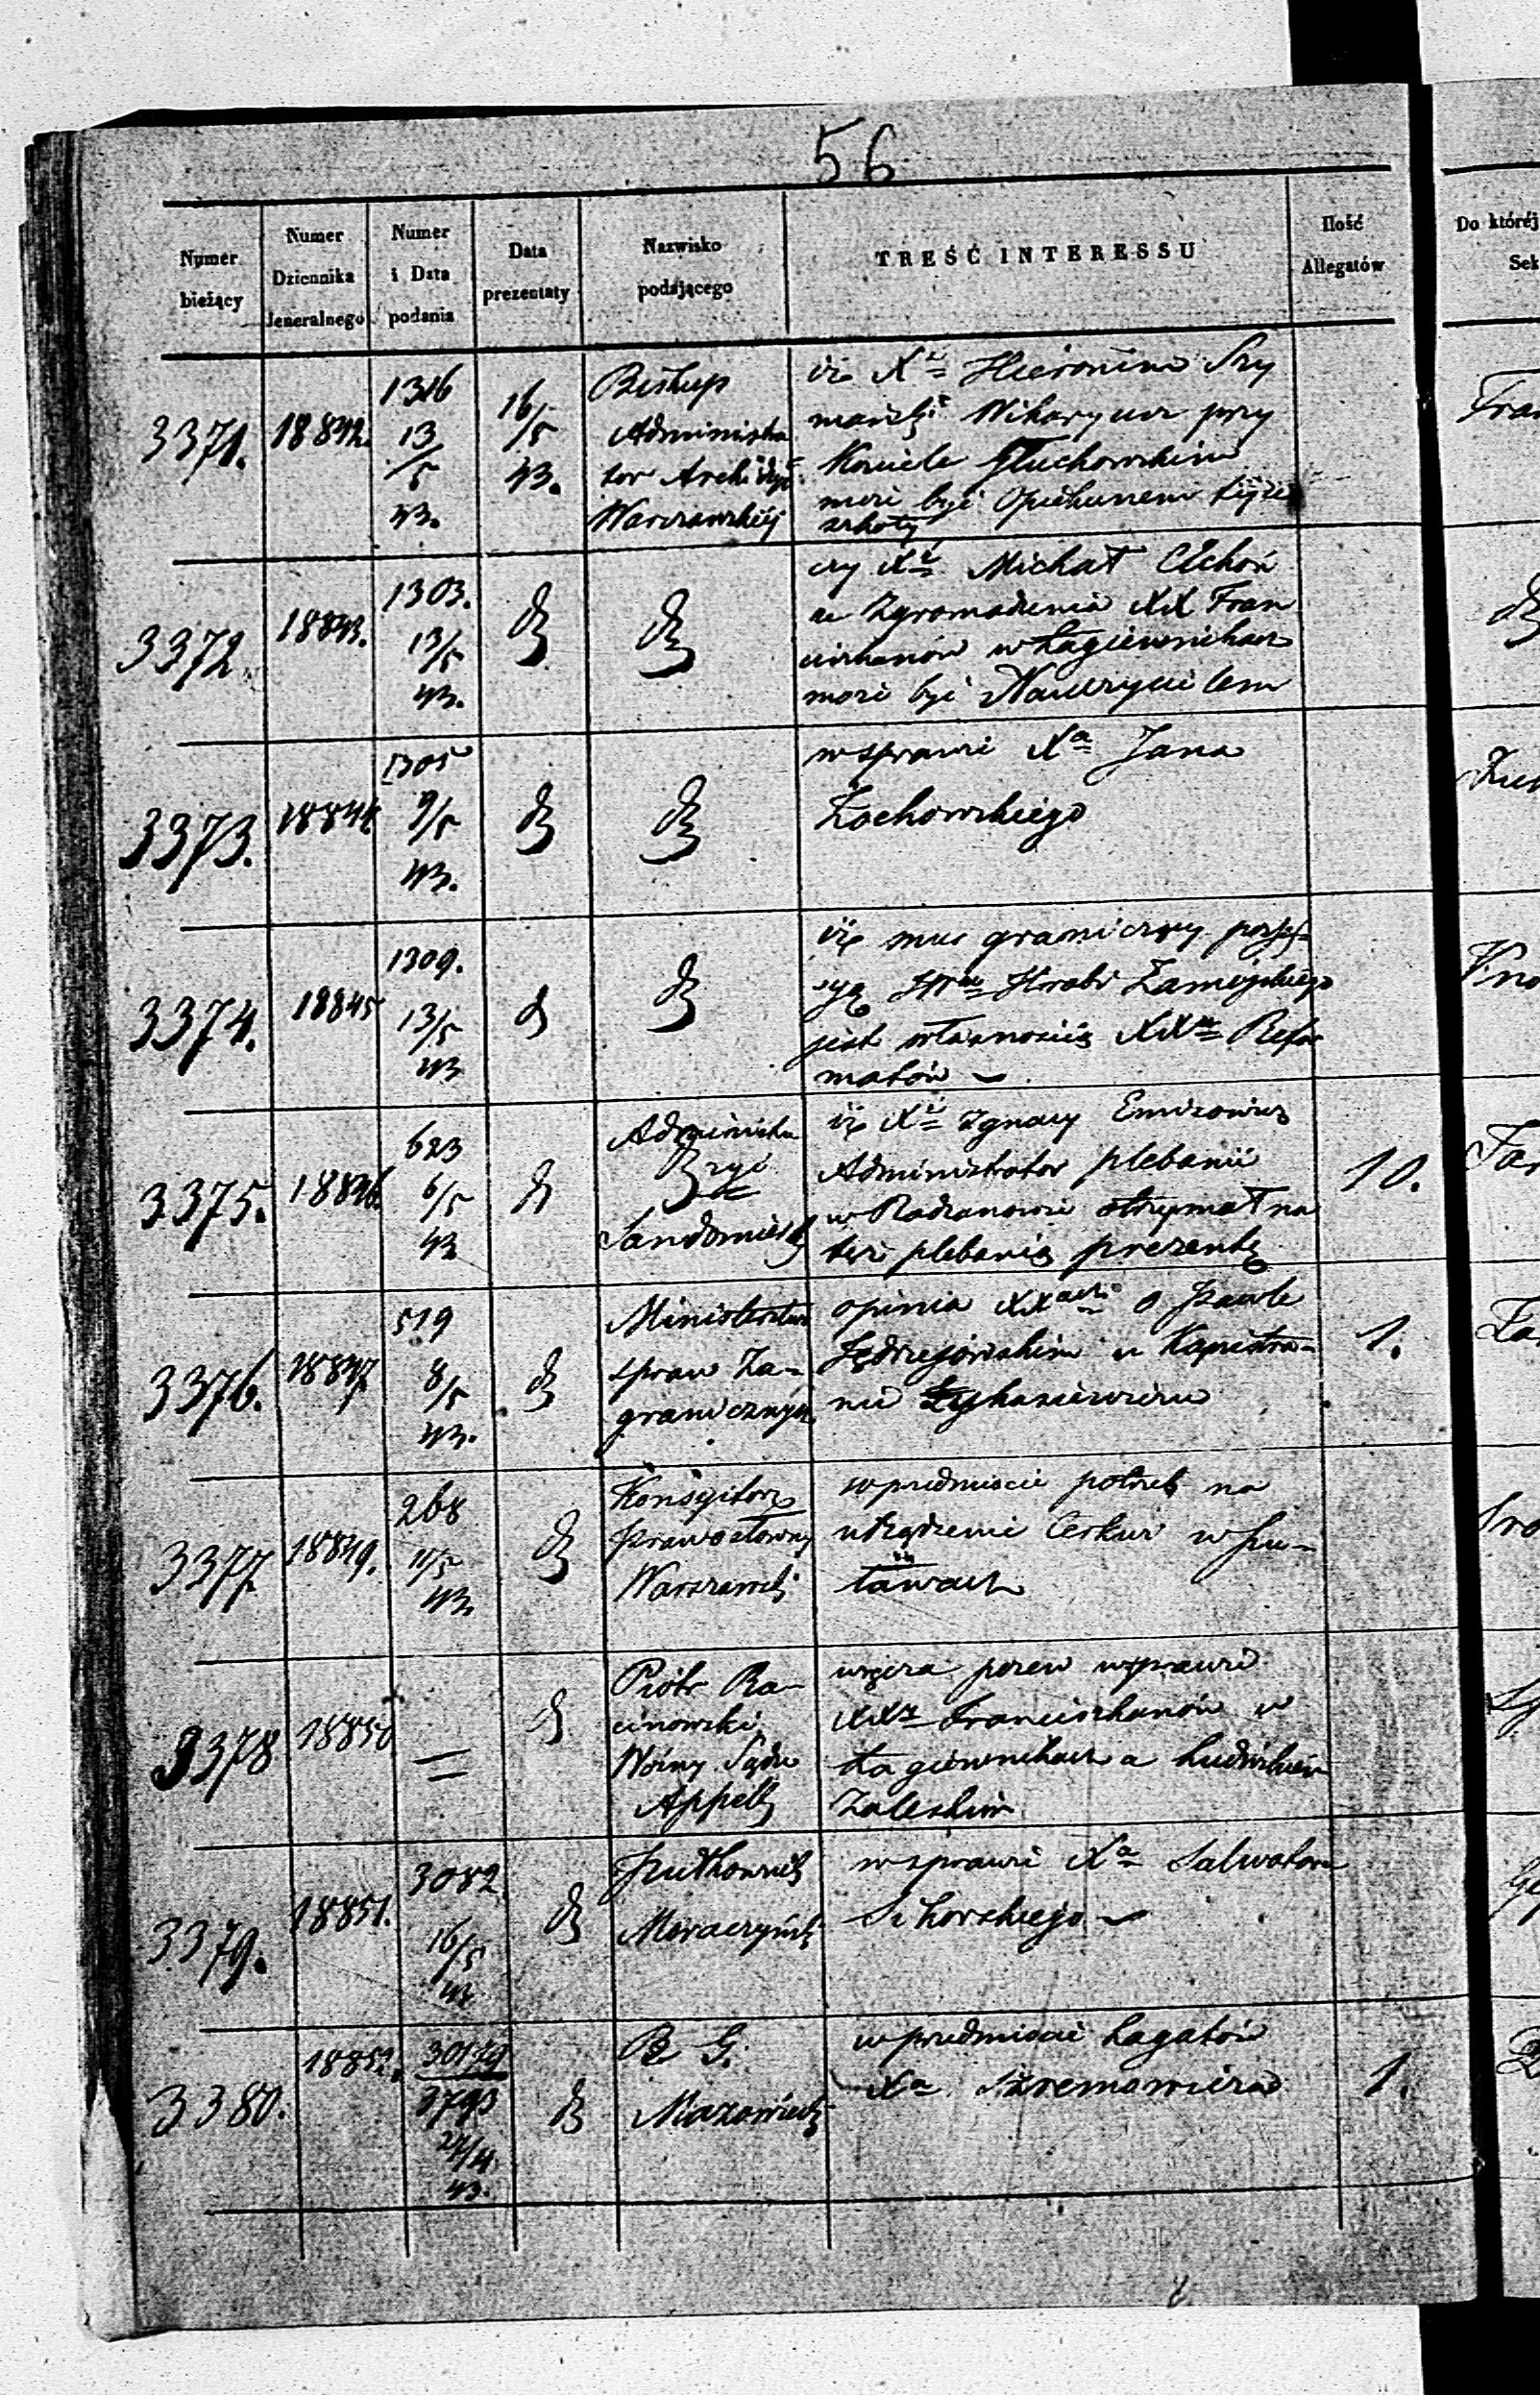 56
Numer bieżący | Numer Dziennika Jeneralnego | Numer i Data podania | Data prezentaty | Nazwisko podającego | TREŚĆ INTERESSU | Ilość Allegatów | Do któréj Sek
3371. | 18842. | 1316 13/5 43. | 16/5 43. | Biskup
Administra
tor Archidye
Warszawskiéj | iż Xdz Hieronim Szy
mański Wikaryusz przy
Kościele Głuchowskim
może być Opiekunem tejże
szkoły | Fra
3372. | 18843. | 1303. 13/5 43. | czy Xdz Michał Cichoń
ze Zgromadzenia XX Fran
ciszkanów w Łagiewnikach
może być Nauczycielem
3373. | 18844 | 1305 9/5 43. | w sprawie Xa Jana
Żochowskiego
3374. | 18845 | 1309. 13/5 43 | iż mur graniczny
Hrabi Zamojskiego
jest własnością XXw Refor
matów
3375. | 18846. | 623 6/5 43 | Administr
Dyec
Sandomiersk | iż Xdz Ignacy
Administrator plebanii
w Radzanowie otrzymał na
też plebanią prezentę | 10.
3376. | 18847 | 519 8/5 43. | Ministerstwo
spraw Za-
granicznych | opinia XXach o Pawle
Jędrzejowskim i Kapistra-
nie Łykasiewiczu | 1. | Za
3377 | 18849. | 268 11/5 43 | Konsystorz
prawosławny
Warszawski | w przedmiocie potrzeb na
urządzenie Cerkwi w Pu-
ławach
3378 | 18850 | Piotr Ra-
cinowski
Woźny Sądu
Appell | wręcza pozew w sprawie
XXy Franciszkanów w
Łagiewnikach a Ludwikiem
Zaleskim
3379. | 18851. | 3082 16/5 43 | Pułkownik
Moraczyński | w sprawie Xa Salwatora
Sikorskiego
3380. | 18852. | 3793 27/4 43. | R. G.
Mazowiecki | w przedmiocie Legatów
Xa | 1.